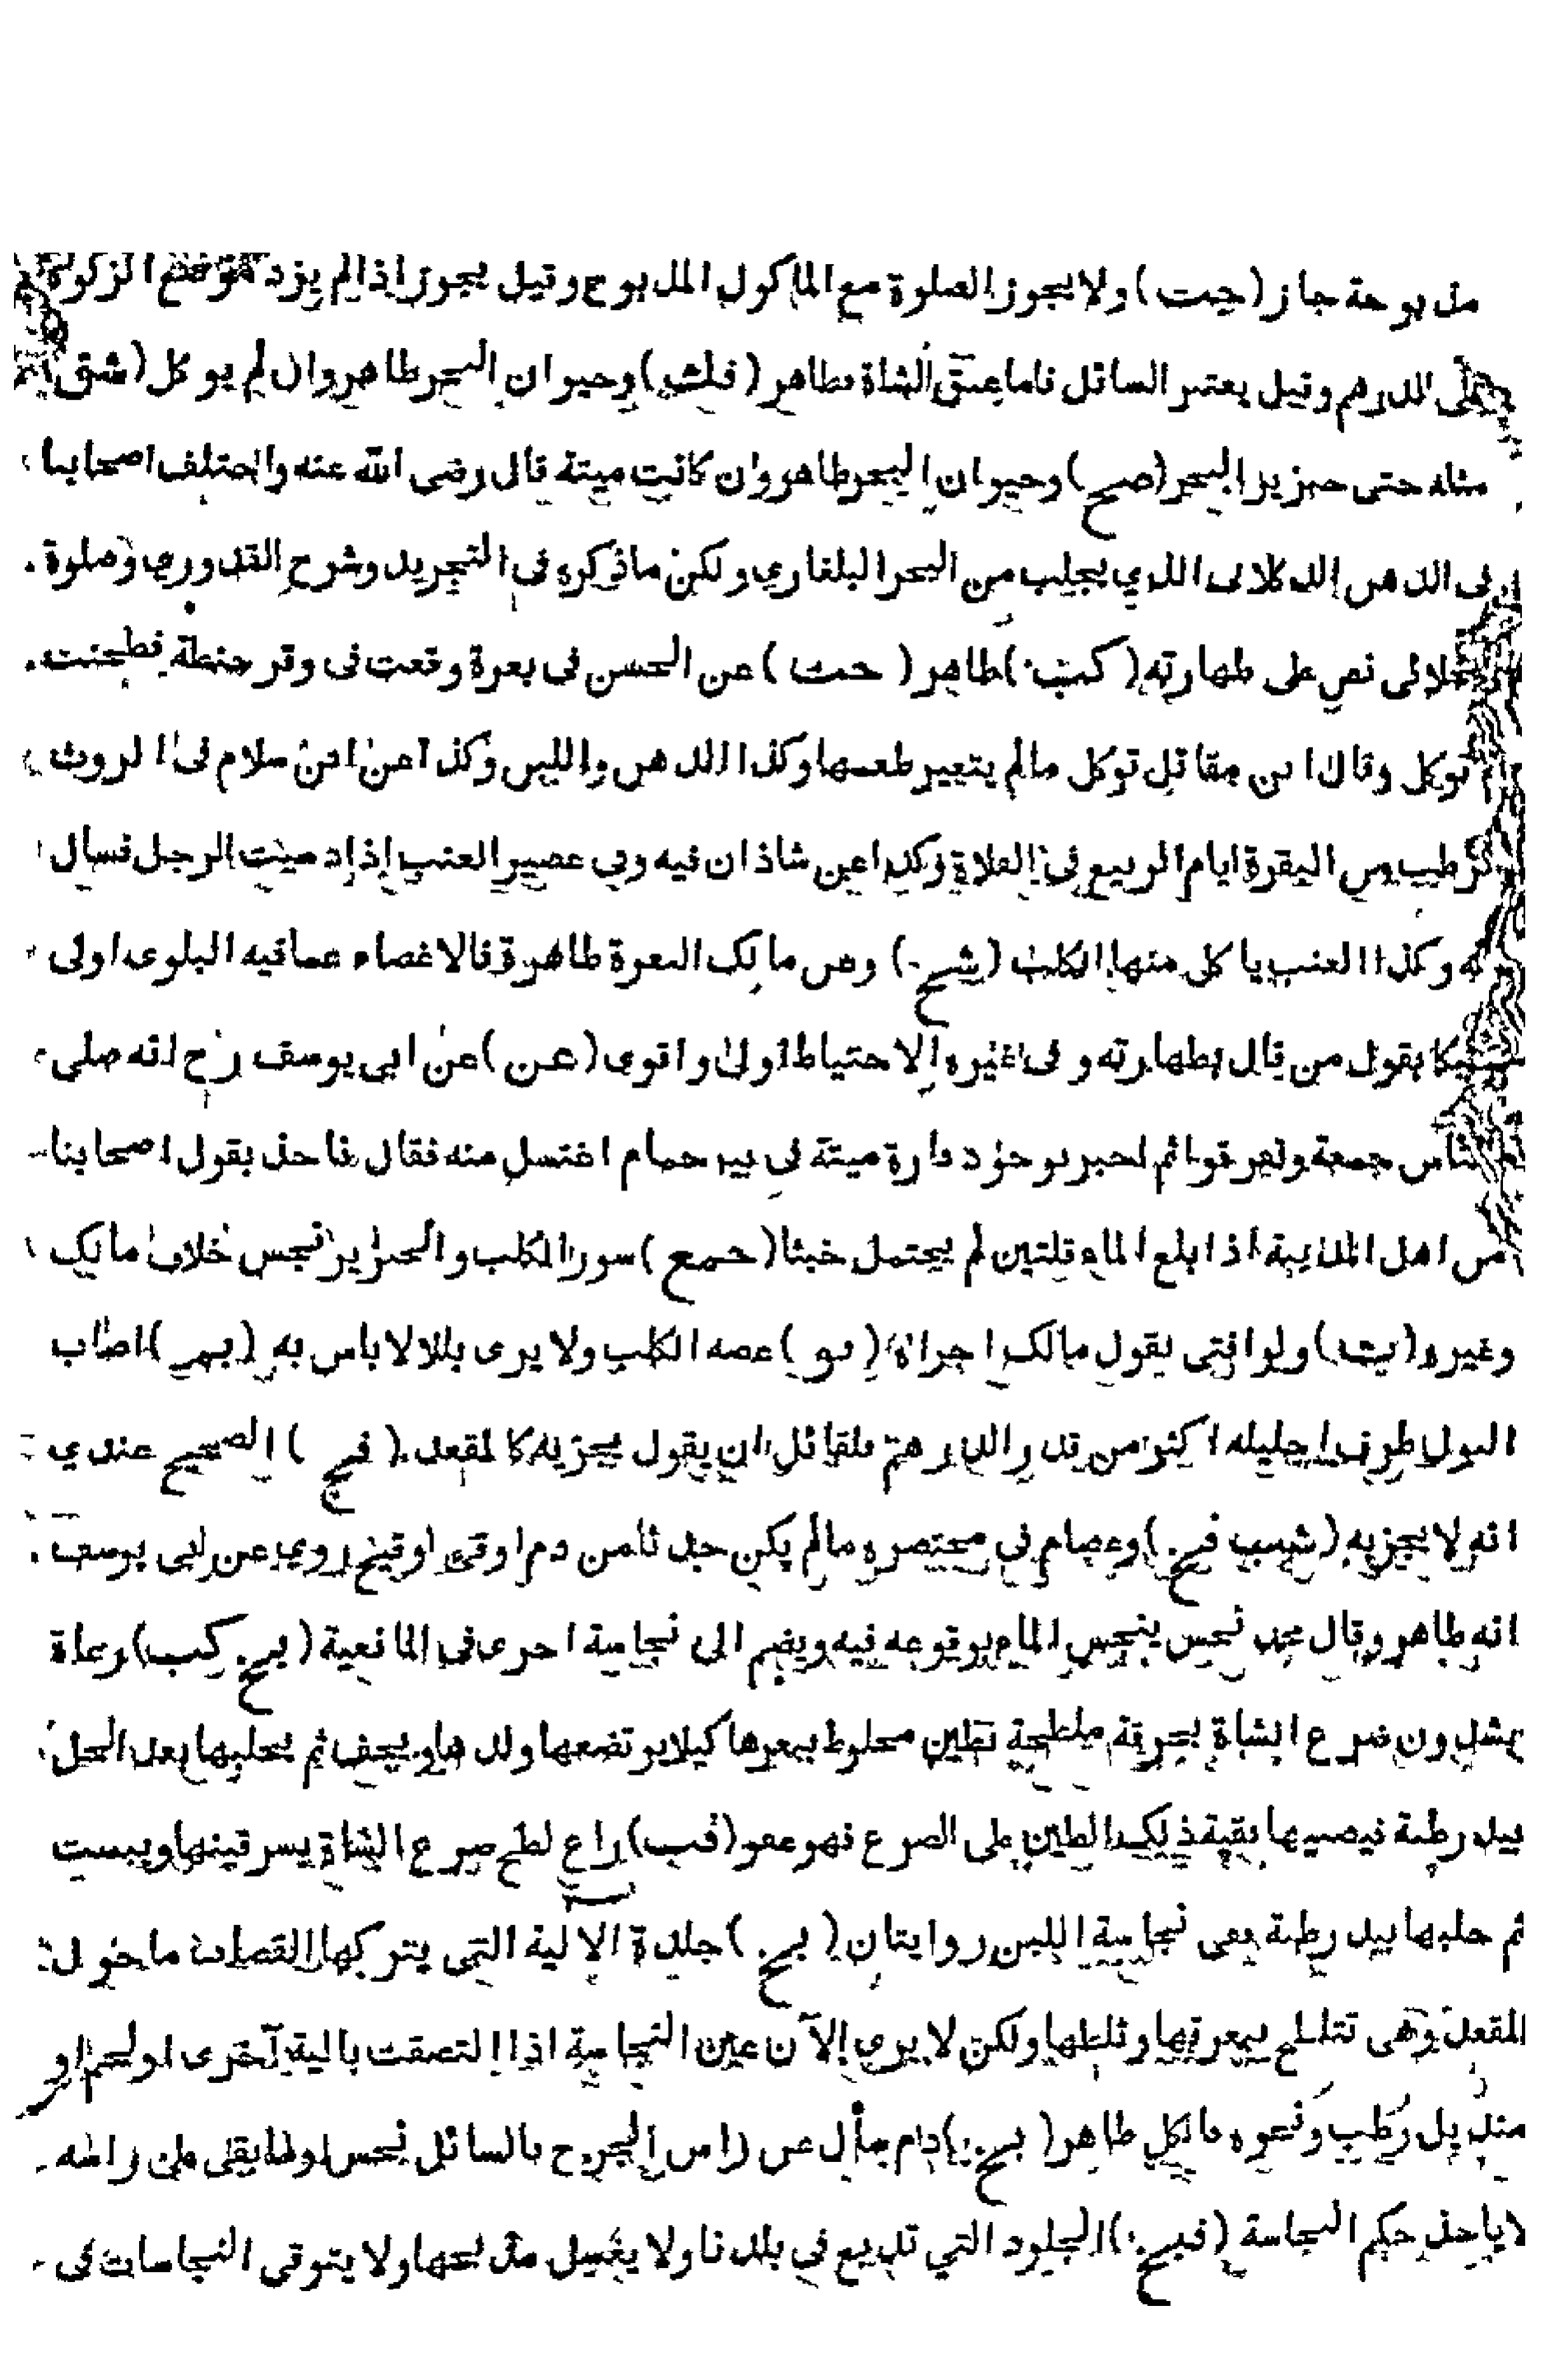 مذبوحة جاز (جت) ولا يجوز الصلوة مع الماكول المذبوح وقيل يجوز اذا لم يزد موضع الزكوة
على الدرهم وقيل يعتبر السائل فاما عنق الشاة فطاهر (فلشد) وحيوان البحر طاهر وان لم يوكل (شق)
مثله حتى خنزير البحر (صح) وحيوان البحر طاهر وان كانت ميتة قال رضى الله عنه واختلف اصحابنا
فى الدهن الذى يجلب من البحر البلغاري ولكن ما ذكره فى التجريد وشرح القدوري وصلوة
الجلالى نص على طهارته (كب) طاهر (حت) عن الحسن فى بعرة وقعت فى وقر حنطة فطحنت
توكل وقال ابن مقاتل توكل ما لم يتغير طعمها وكذا الدهن واللبن وكذا عن ابن سلام فى الروث
الرطب من البقرة ايام الربيع فى وكذا عن شاذان فيه وفى عصير العنب اذا دميت الرجل فسال
فيه وكذا العنب ياكل منها الكلب (شح) وعن مالك البعرة طاهرة فالاغضاء عما فيه البلوى اولى
تمسكا بقول من قال بطهارته وفى غيره الاحتياط اولى واقوى (عن) عن ابى يوسف رح انه صلى
بالناس جمعة وتفرقوا ثم اخبر بوجود فارة ميتة فى بير حمام اغتسل منه فقال ناخذ بقول اصحابنا
من اهل المدينة اذا بلغ الماء قلتين لم يحتمل خبثا (حمع) سور الكلب والخنزير نجس خلافا مالك
وغيره (يت) ولو افتى بقول مالك اجزاه (بو) عضه الكلب ولا يرى بللا لا باس به (بم) اصاب
البول طرف احليله اكثر من قدر الدرهم فلقائل ان يقول يجزيه كالمقعد (فح) الصحيح عندي
انه لا يجزيه (شب فح) وعصام فى مختصره ما لم يكن حدثا من دم او قىء او قيح روي عن ابى يوسف
انه طاهر وقال محمد نجس ينجس الماء بوقوعه فيه ويضم الى نجاسة اخرى فى المانعية (بح كب) رعاة
يشدون ضرع الشاة بخرقة ملطخة بطين مخلوط ببعرها كيلا يرتضعها ولدها ويجف ثم يحلبها بعد الحل
بيد رطبة فيصيبها بقية ذلك الطين على الضرع فهو عفو (فب) راع لطخ ضرع الشاة بسرقينها ويبست
ثم حلبها بيد رطبة ففى نجاسة اللبن روايتان (بح) جلدة الالية التى يتركها القصاب ما حول
المقعد وهى تتلطخ ببعرتها وثلطها ولكن لا يرى الآن عين النجاسة اذا التصقت بالية آخرى او لحم او
منديل رطب ونحوه فالكل طاهر (بح) دام سال عن راس الجرح فالسائل نجس او لما بقى على راسه
لا ياخذ حكم النجاسة (فبح) الجلود التي تدبغ في بلدنا ولا يغسل مذبحها ولا يتوقى النجاسات فى